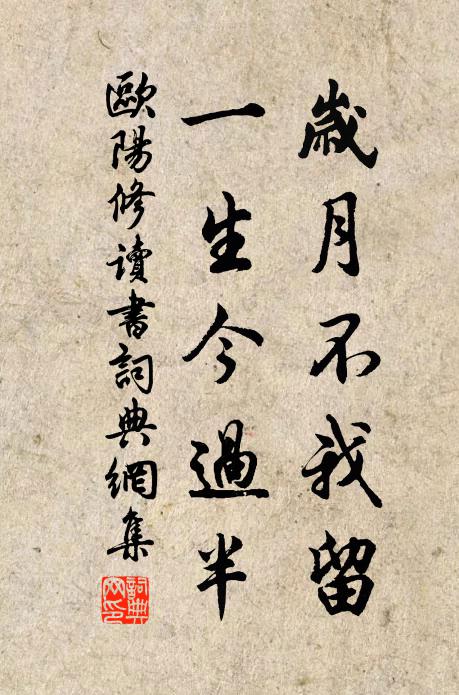 歲月不我留
一生今過半
歐陽修讀書詞典網集
詞典網印